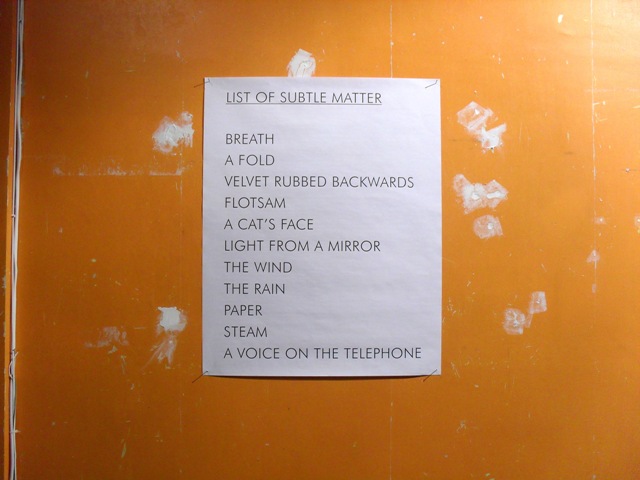 LIST OF SUBTLE MATTER
BREATH
A FOLD
VELVET RUBBED BACKWARDS
FLOTSAM
A CAT'S FACE
LIGHT FROM A MIRROR
THE WIND
THE RAIN
PAPER
STEAM
A VOICE ON THE TELEPHONE